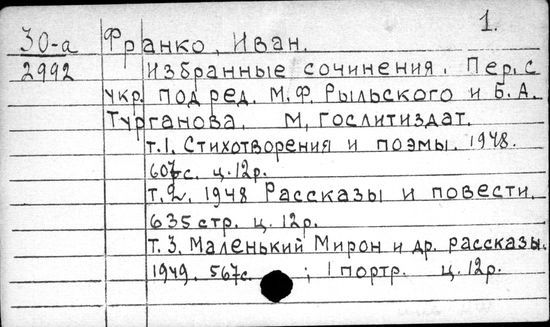 1.
30-а Франко, Иван.
2992 Избранные сочинения. Пер. с
укр. под ред. М.Ф. Рыльского и Б.А.
Турганова. М, Гослитиздат.
т.1. Стихотворения и поэмы. 1948.
607с. ц.12р.
т.2. 1948 Рассказы и повести.
635 стр. ц. 12р.
т.3. Маленький Мирон и др. рассказы.
1949. 567с. ; 1 портр. ц.12р.